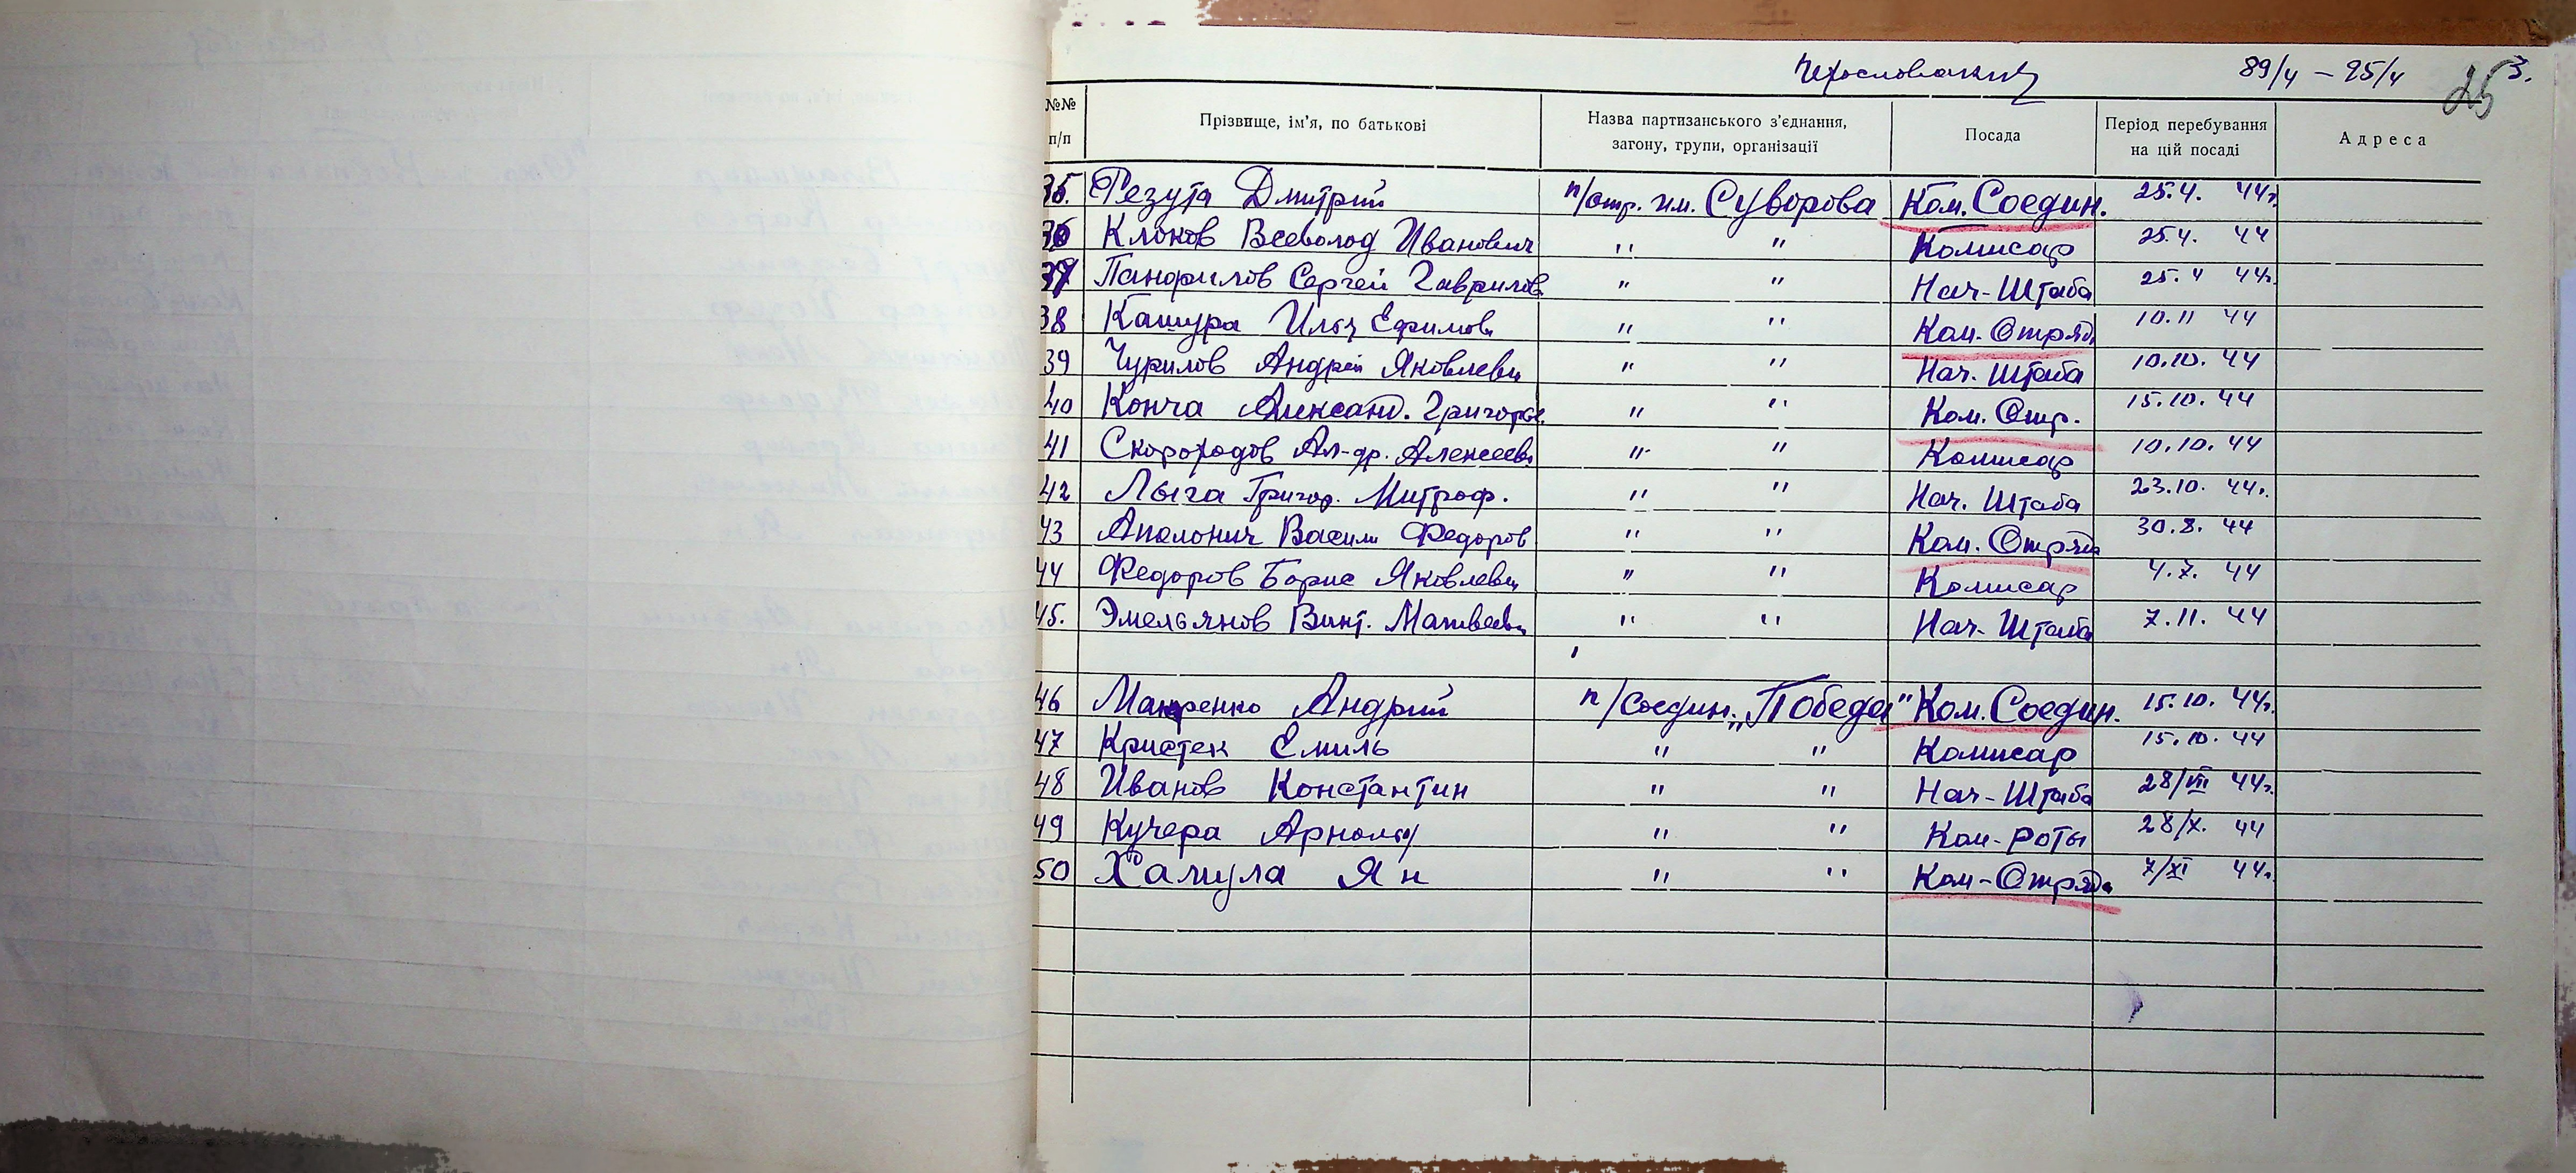 Чехословакия 89/4 – 95/4 3.
25
№№ п/п Прізвище, ім'я, по батькові Назва партизанського з'єднання, загону, групи, організації Посада Період перебування на цій посаді Адреса
35. Резута Дмитрий п/отр. им. Суворова Ком. Соедин. 25.4. 44г.
36 Клоков Всеволод Иванович " " Комисар 25.4. 44
37 Панфилов Сергей Гаврилов " " Нач-Штаба 25.4 44г.
38 Кашура Илья Ефимови " " Ком. Отряд 10.11 44
39 Чурилов Андрей Яковлеви " " Нач. Штаба 10.10. 44
40 Конча Александ. Григорье " " Ком. Отр. 15.10. 44
41 Скороходов Ал-др. Алексееви " " Комисар 10.10. 44
42 Лыга Григор. Митроф. " " Нач. Штаба 23.10. 44г.
43 Аполонич Васили Федоров " " Ком. Отряда 30.8. 44
44 Федоров Борис Яковлеви " " Комисар 4.7. 44
45. Эмельянов Викт. Матвееви " " Нач-Штаба 7.11. 44
46 Макаренко Андрий п/Соедин. „Победа" Ком. Соедин. 15.10. 44г.
47 Кристек Емиль " " Комисар 15.10. 44
48 Иванов Константин " " Нач-Штаба 28/VIII 44г.
49 Кучера Арнольд " " Ком-роты 28/X. 44
50 Хамула Ян " " Ком-Отряда 7/XI 44г.